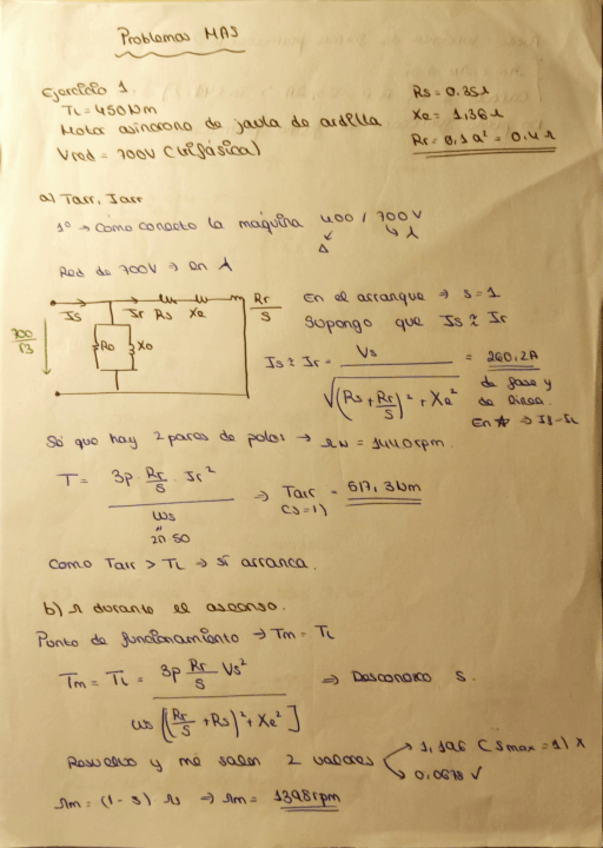 Problemas MAS
Ejercicio 1
TL = 450 Nm
Motor asíncrono de jaula de ardilla
Vred = 700V (trifásica)
Rs = 0.35Ω
Xe = 1,36Ω
Rr = 0,1 a² = 0.4 Ω
a) Tarr, Iarr
1º → Cómo conecto la máquina 400 / 700 V
Δ λ
Red de 700V ⇒ en λ
Is Ir Rs Xe Rr/S
700/√3 Ro Xo
En el arranque ⇒ s = 1
Supongo que Is ≈ Ir
Is ≈ Ir = Vs / √((Rs + Rr/S)² + Xe²) = 260.2A
de fase y
de línea.
En λ → If = IL
Sé que hay 2 pares de polos → ΩN = 1440rpm.
T = 3p · Rr/S · Ir² / ωs ⇒ Tarr = 517,3 Nm
(s=1)
2π 50
Como Tarr > TL ⇒ sí arranca.
b) Ω durante el ascenso.
Punto de funcionamiento → Tm = TL
Tm = TL = 3p Rr/S Vs² / ωs [(Rr/S + Rs)² + Xe²] ⇒ Desconozco S.
Resuelvo y me salen 2 valores → 1,196 (Smax = 1) X
→ 0,0678 ✓
Ωm = (1 - s) Ωs ⇒ Ωm = 1398rpm